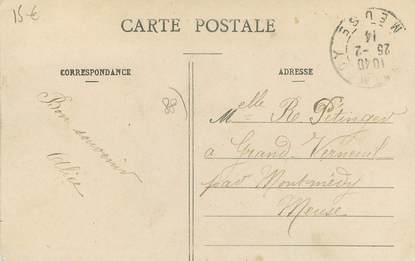 15€
CARTE POSTALE
CORRESPONDANCE
ADRESSE
MEUSE
10 40
25 - 2
14
88
Bon souvenir
Alice
Melle R. Petinger
à Grand-Verneuil
par Montmédy
Meuse